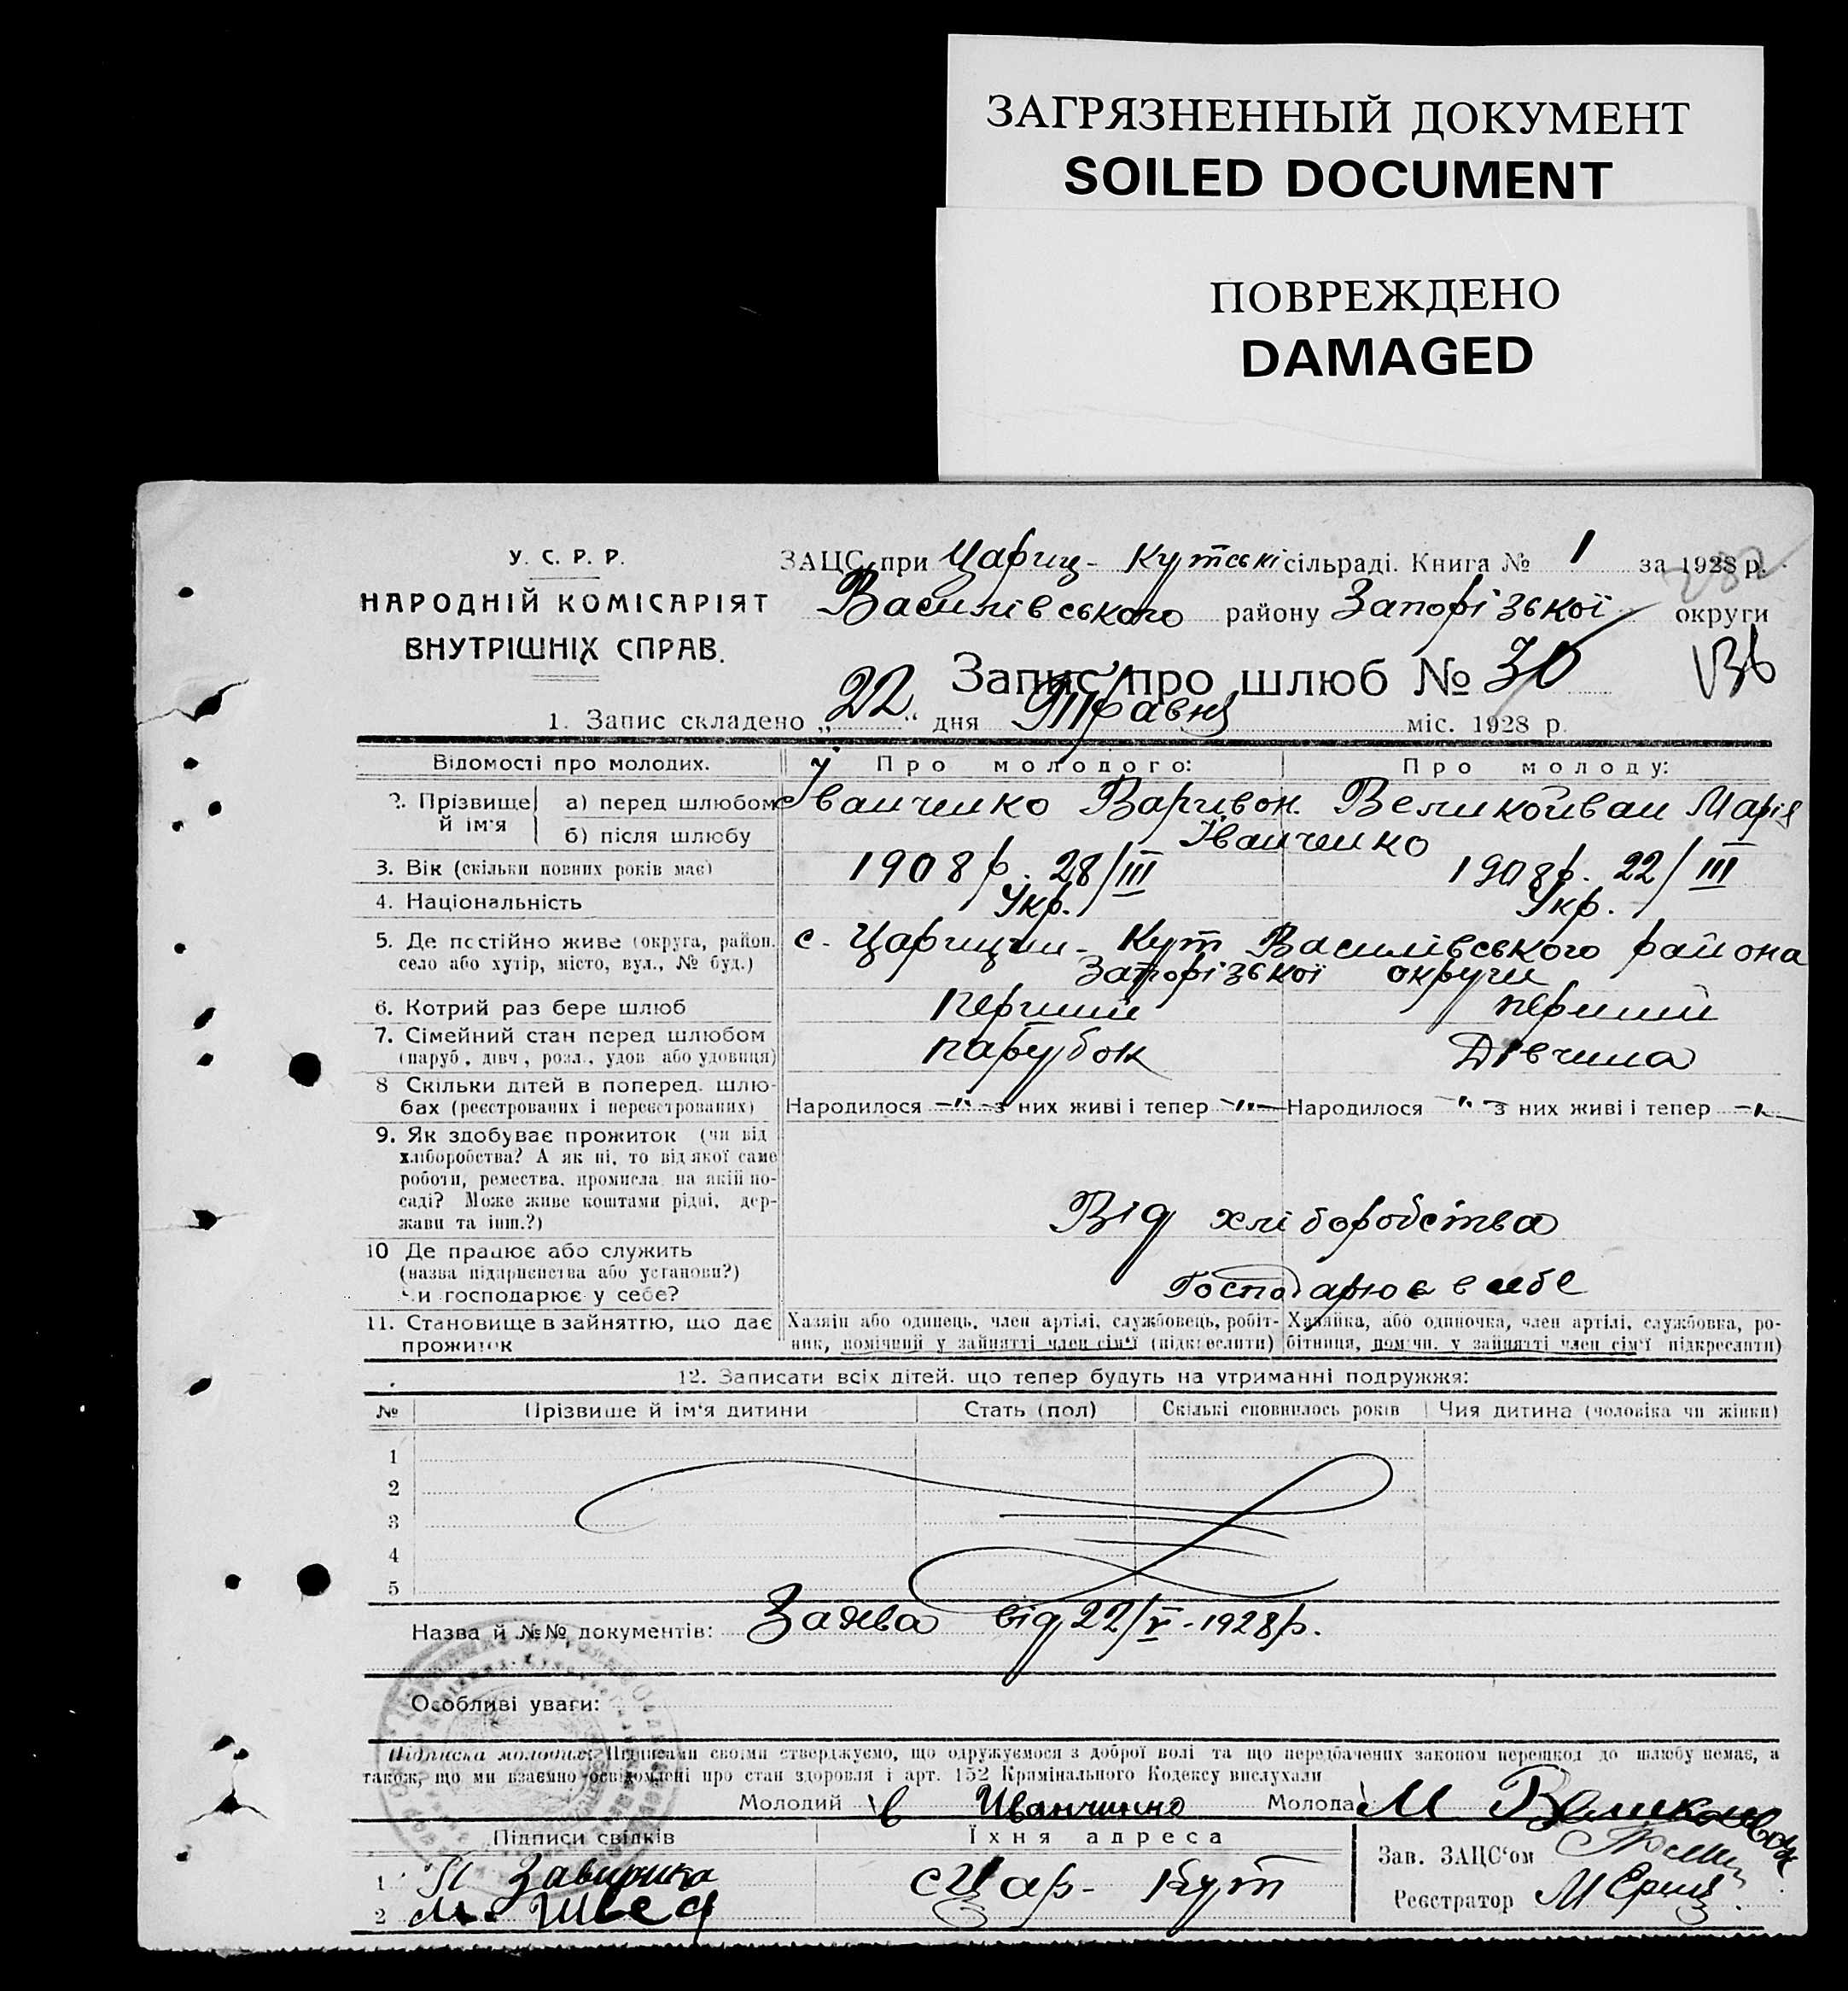 ЗАГРЯЗНЕННЫЙ ДОКУМЕНТ
SOILED DOCUMENT
ПОВРЕЖДЕНО
DAMAGED
У. С. Р. Р.
НАРОДНІЙ КОМІСАРІЯТ
ВНУТРІШНІХ СПРАВ.
ЗАЦС при Цариц-Кутські сільраді. Книга № 1 за 1928 р.
Василівського району Запорізької округи
Запис про шлюб № 30
1. Запис складено „22“ дня Травня міс. 1928 р.
Відомості про молодих. Про молодого: Про молоду:
2. Прізвище й ім'я а) перед шлюбом Іванченко Варивон Великоиван Марія
б) після шлюбу Іванченко
3. Вік (скільки повних років має) 1908 р. 28/III 1908 р. 22/III
4. Національність Укр. Укр.
5. Де постійно живе (округа, район. с. Царицин-Кут Василівського района
село або хутір, місто, вул., № буд.) Запорізької округи
6. Котрий раз бере шлюб перший перший
7. Сімейний стан перед шлюбом парубок Дівчина
(паруб., дівч., розл., удов. або удовиця)
8 Скільки дітей в поперед. шлю-
бах (реєстрованих і нереєстрованих) Народилося —"— з них живі і тепер —"— Народилося —"— з них живі і тепер —"—
9. Як здобуває прожиток (чи від
хліборобства? А як ні, то від якої саме
роботи, ремества, промисла, на якій по-
саді? Може живе коштами рідні, дер-
жави та інш.?) Від хліборобства
10 Де працює або служить
(назва підприємства або установи?)
Чи господарює у себе? Господарює в себе
11. Становище в зайняттю, що дає Хазяїн або одинець, член артілі, службовець, робіт- Хазяйка, або одиночка, член артілі, службовка, ро-
прожиток ник, помічний у зайнятті член сім'ї (підкреслити) бітниця, помічн. у зайнятті член сім'ї підкреслити)
12. Записати всіх дітей, що тепер будуть на утриманні подружжя:
№ Прізвище й ім'я дитини Стать (пол) Скількі сповнилось років Чия дитина (чоловіка чи жінки)
1
2
3
4
5
Назва й №№ документів: Заява від 22/V-1928 р.
Особливі уваги:
Підписка молодих: Підписами своїми стверджуємо, що одружуємося з доброї волі та що передбачених законом перешкод до шлюбу немає, а
також, що ми взаємно освідомлені про стан здоровля і арт. 152 Крімінального Кодексу вислухали
Молодий В Иванченко Молода М Великоиван
Підписи свідків Їхня адреса
Зав. ЗАЦС'ом
1 с Цар-Кут
2 М. Швед
Реєстратор М